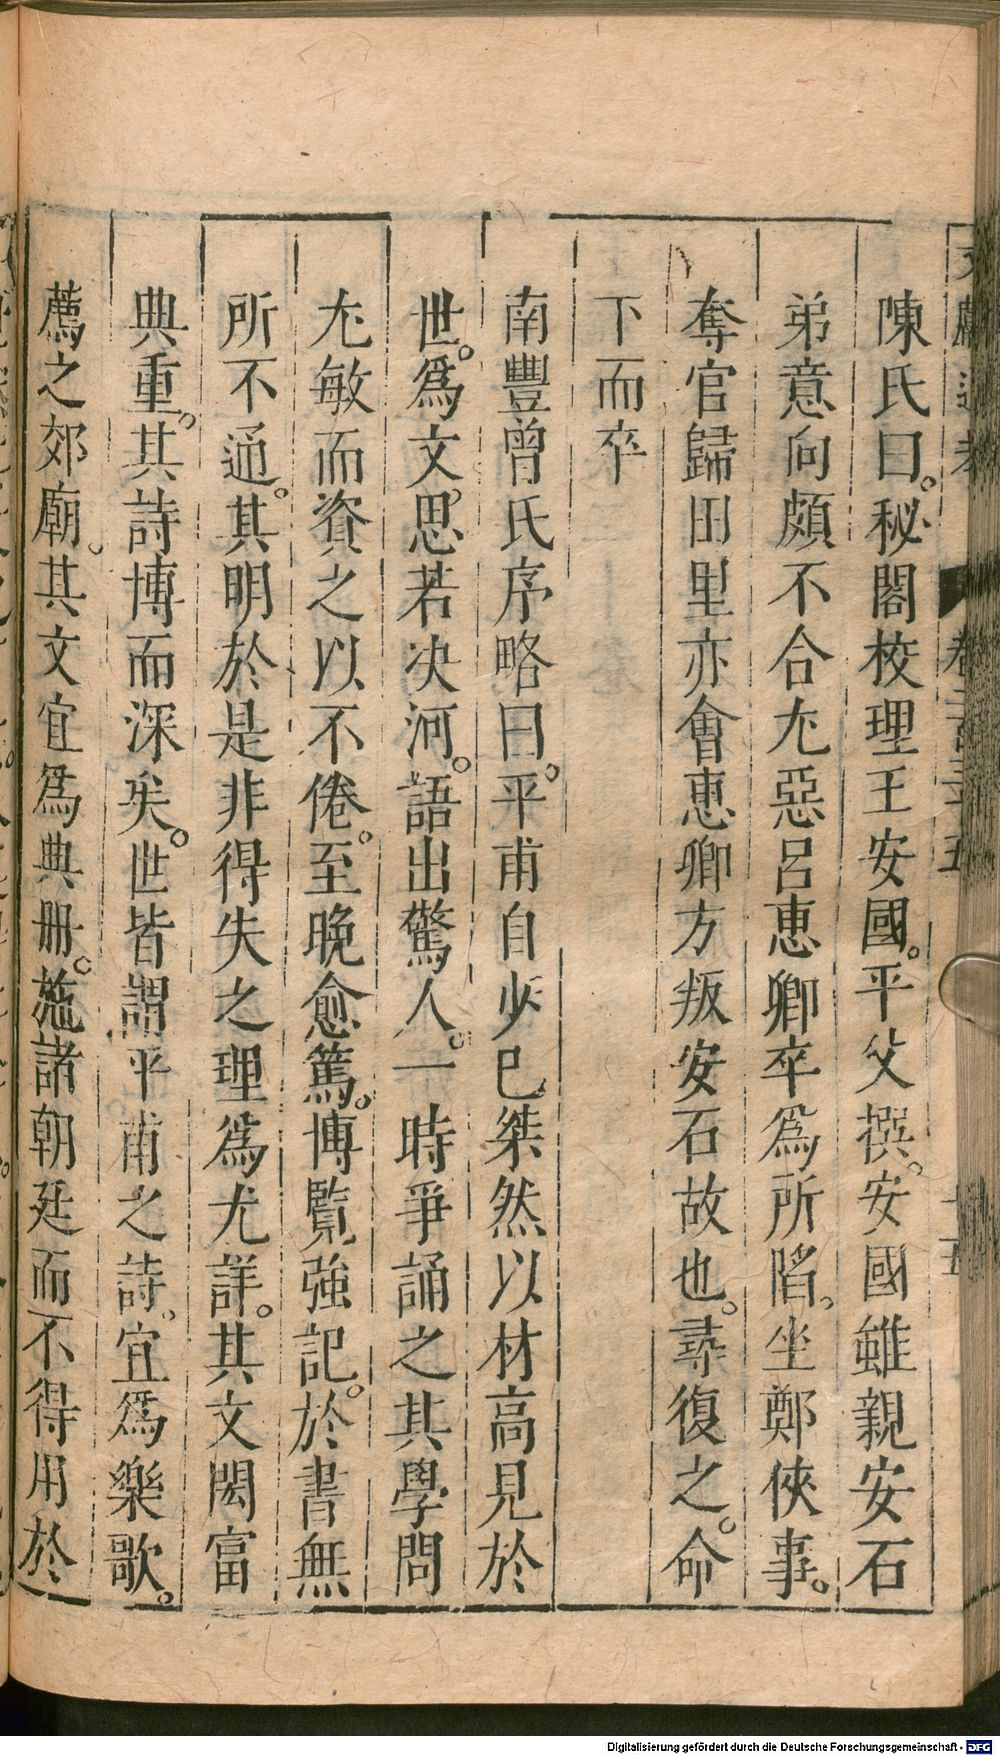 陳氏曰。秘閣校理王安國。平父撰。安國雖親安石
弟意向頗不合尢惡呂惠卿卒爲所陷。坐鄭俠事。
奪官歸田里亦會惠卿方叛安石故也。尋復之。命
下而卒
南豐曾氏序略曰。平甫自少已桀然以材高見於
世。爲文。思若决河。語出驚人。一時爭誦之其學問
尢敏而資之以不倦。至晚愈篤。博覽強記。於書無
所不通。其明於是非得失之理爲尤詳。其文閎富
典重。其詩博而深矣。世皆謂平甫之詩。宜爲樂歌。
薦之郊廟。其文宜爲典册。施諸朝廷而不得用於
Digitalisierung gefördert durch die Deutsche Forschungsgemeinschaft - DFG